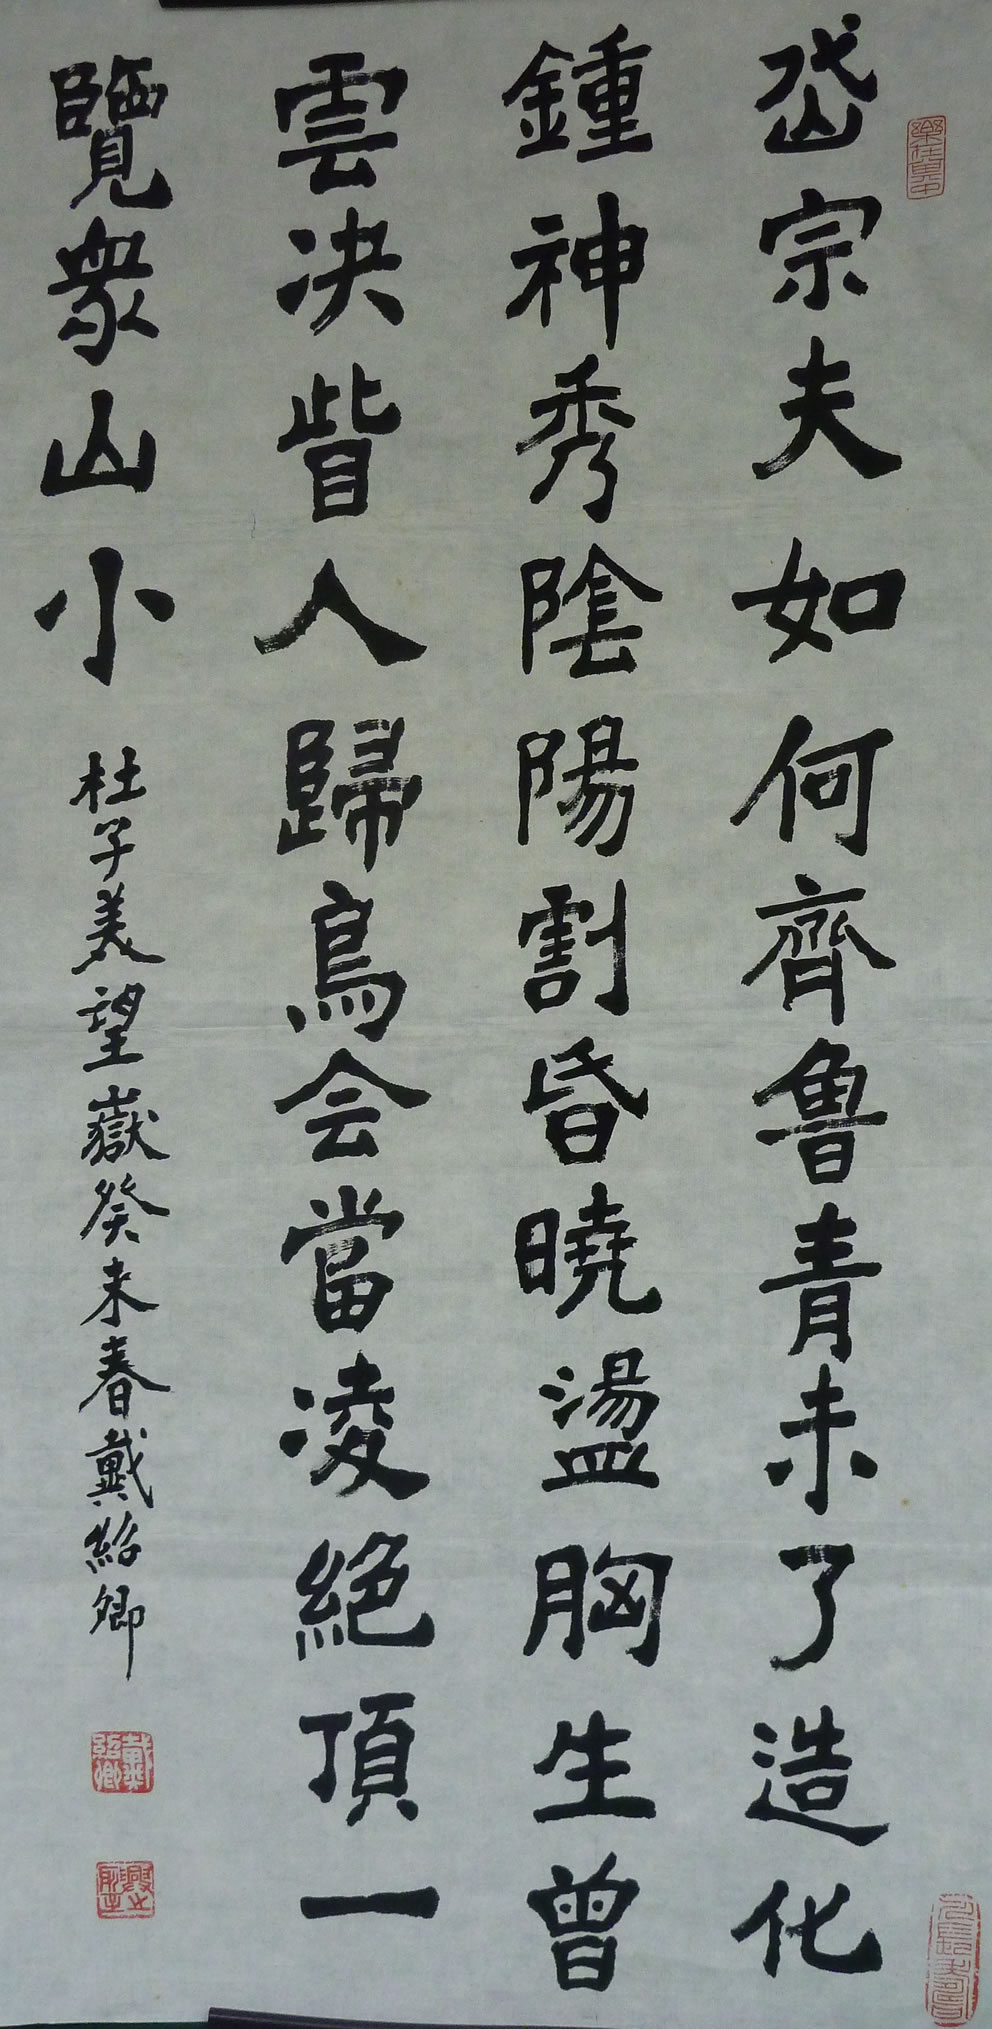 岱宗夫如何齊魯青未了造化
鍾神秀陰陽割昏曉盪胸生曾
雲决眥人歸鳥会當凌絕頂一
覽衆山小
杜子美望嶽癸未春戴紹卿
戴紹卿